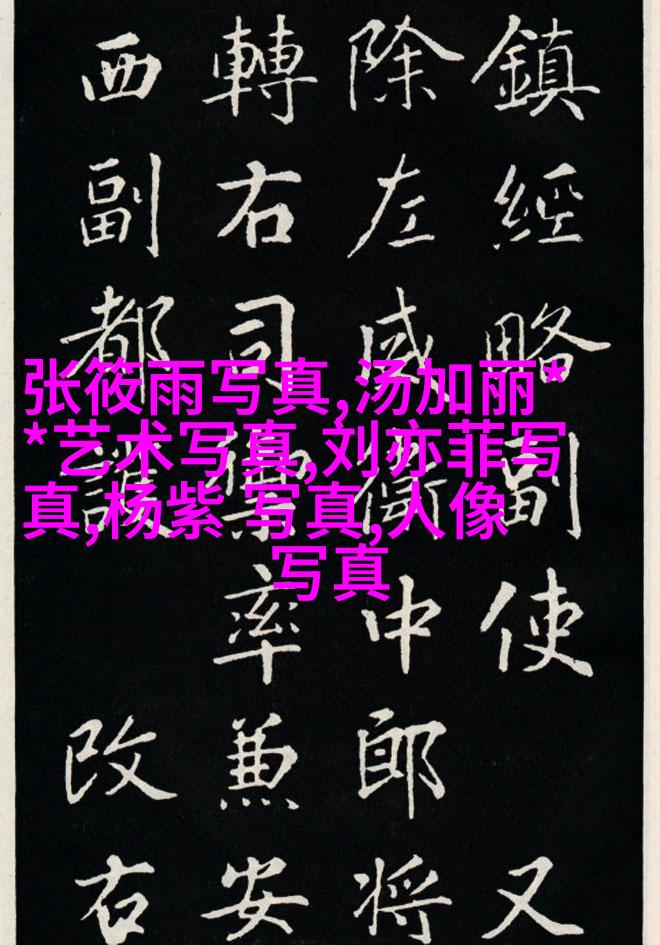 鎮經略副使 又
除左威衛中郎將
轉右司禦率兼安
西副都護 改右
张筱雨写真,汤加丽*
*艺术写真,刘亦菲写
真,杨紫 写真,人像
写真